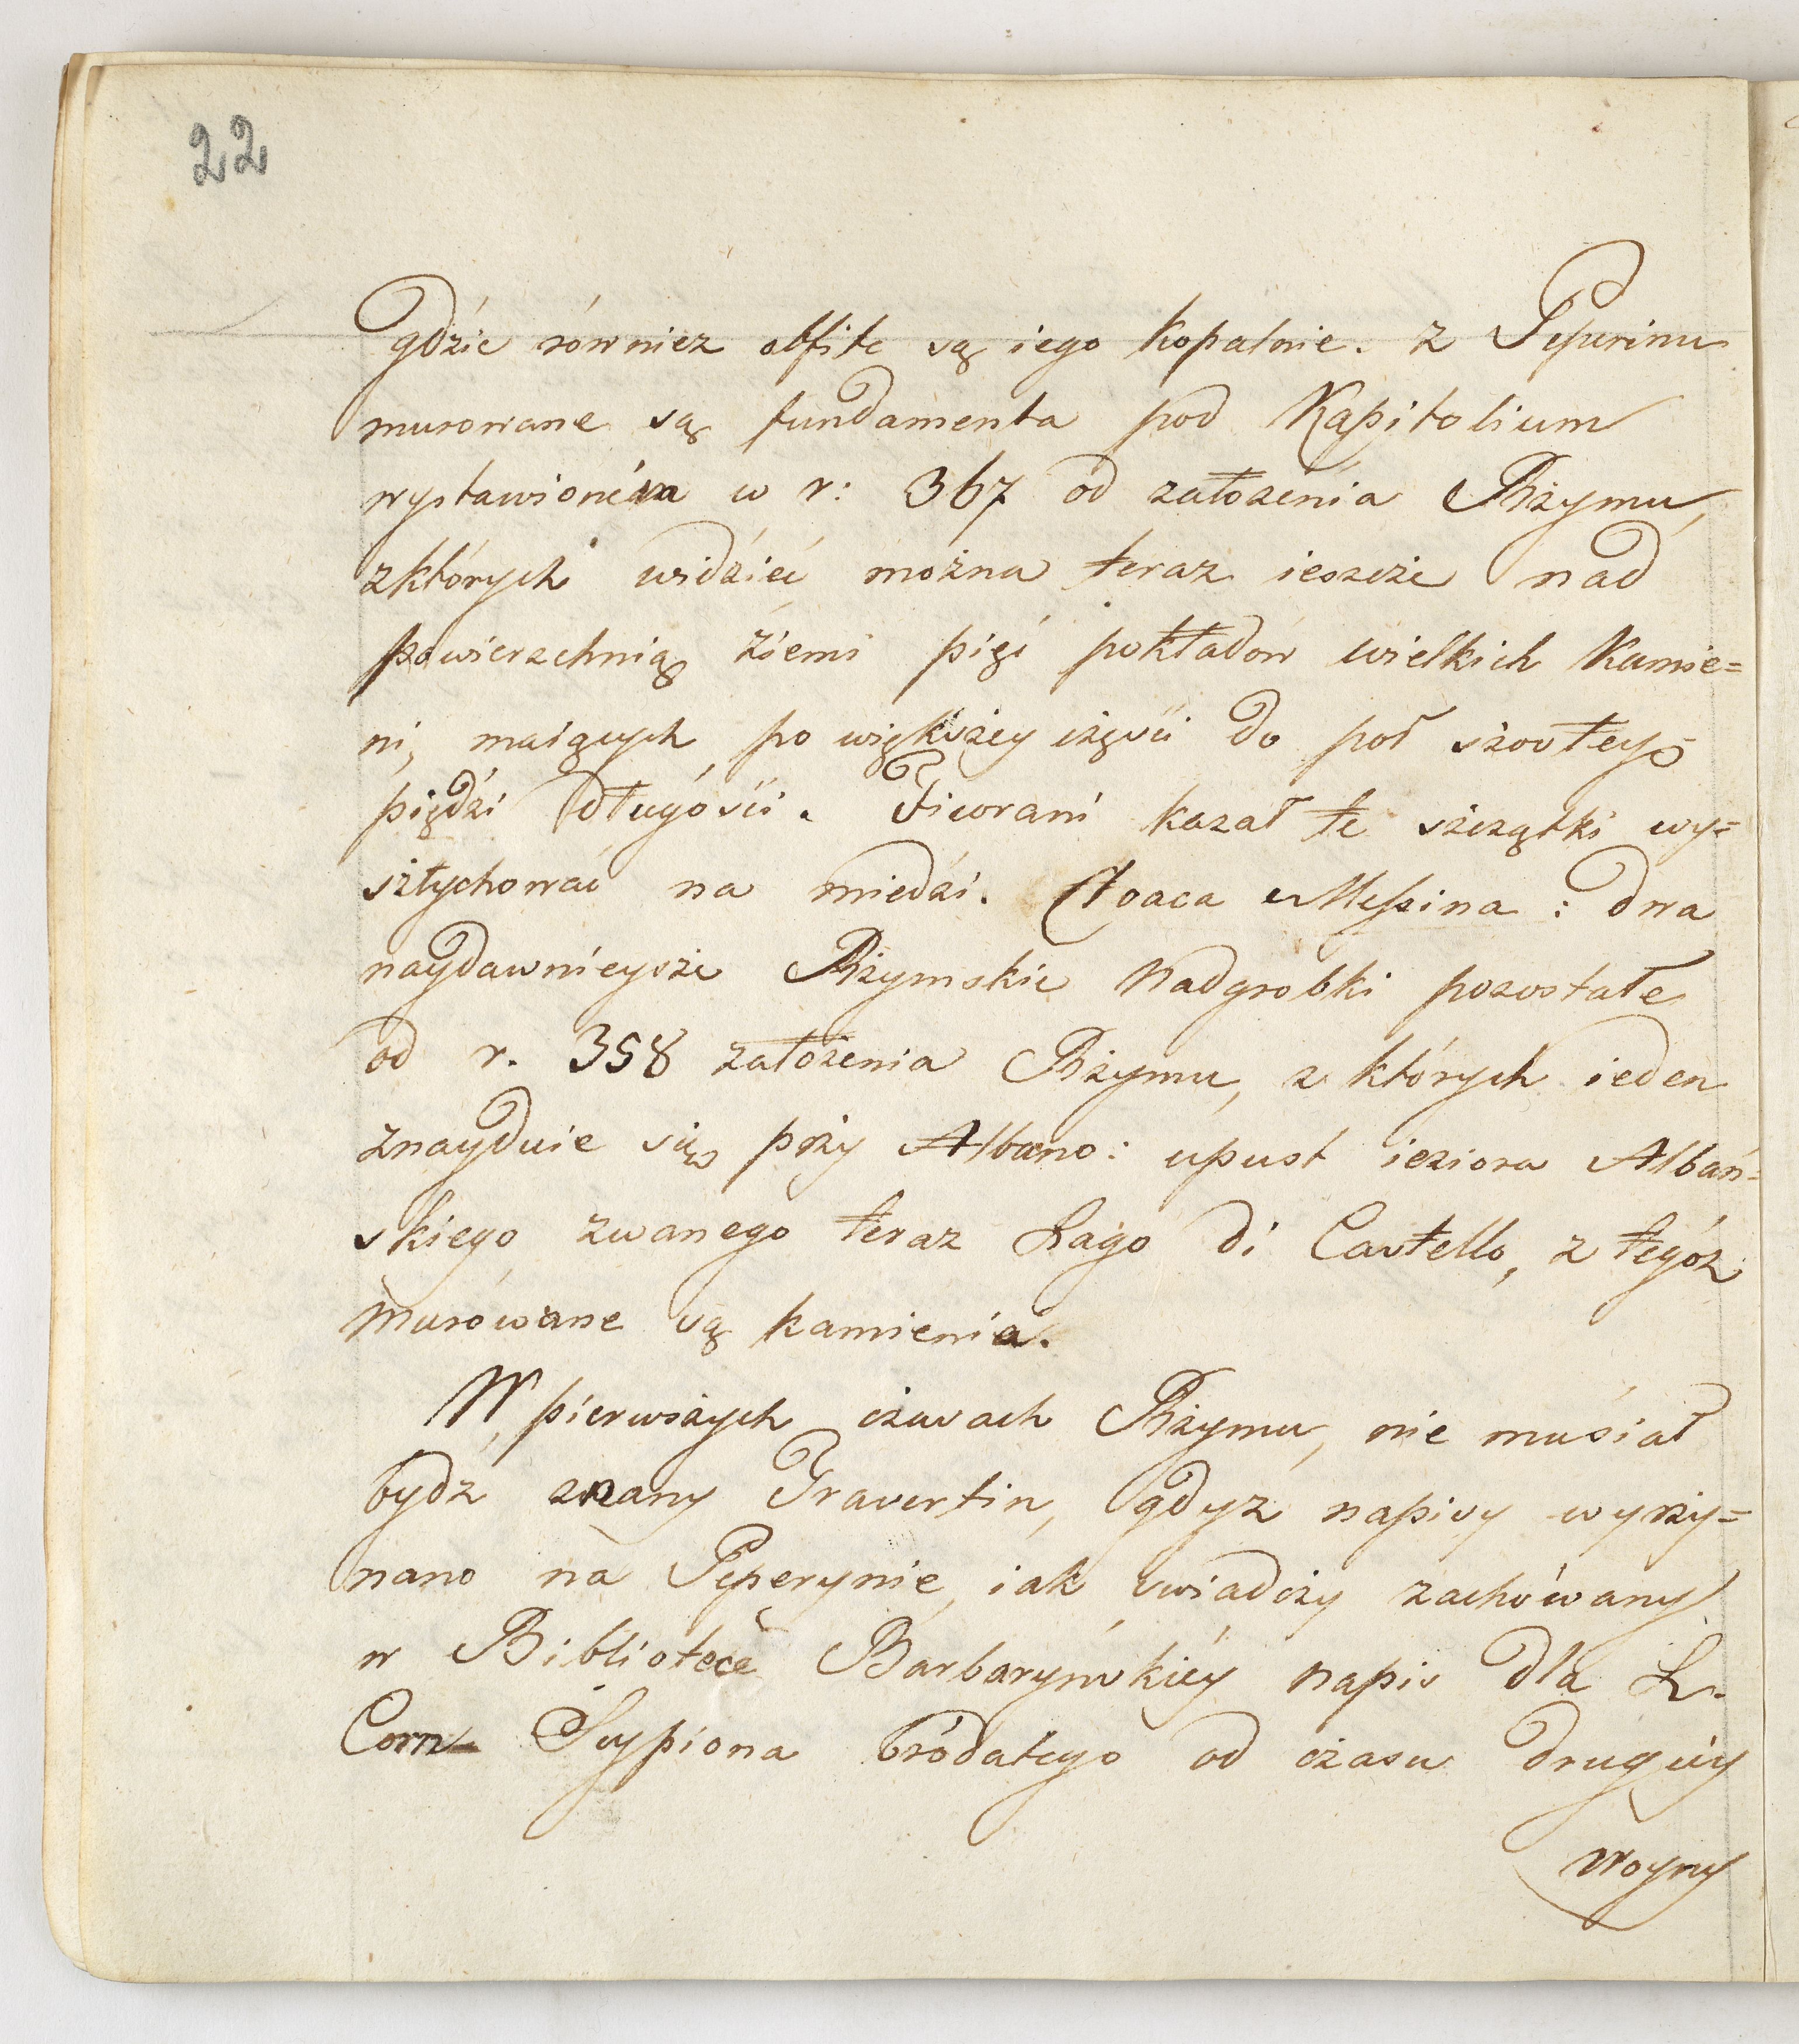 22
gdzie równiez obfite są iego kopalnie. z Pepurinu
murowane są fundamenta pod Kapitolium
wystawione w r: 367 od założenia Rżymu,
zktórych widzieć można teraz ieszcże nad
powierzchnią źiemi pięć pokładów wielkich Kamie=
ni, maiących po więkvżey cżęści do poł szostey
piędzi długości. Ficorani kazał te szcżątki wy=
sztychować na miedzi. Cloaca Messina: dwa
naydawnieysze Rżymskie Nadgrobki pozostałe
od r. 358 założenia Rżymu, z których ieden
znayduie się prży Albano: upust ieziora Albań=
skiego zwanego teraz Lago di Castello, z tegóż
murówane są kamienia.
W pierwszych cżasach Rżymu, nie musiał
bydź znany Travertin, gdyż napisy wyrży=
nano na Peperynie, iak swiadcży zachówany
w Bibliotece Barbaryńskiéy napis dla L.
Corn. Scypiona bródatego od cżasu drugiéy
Woyny